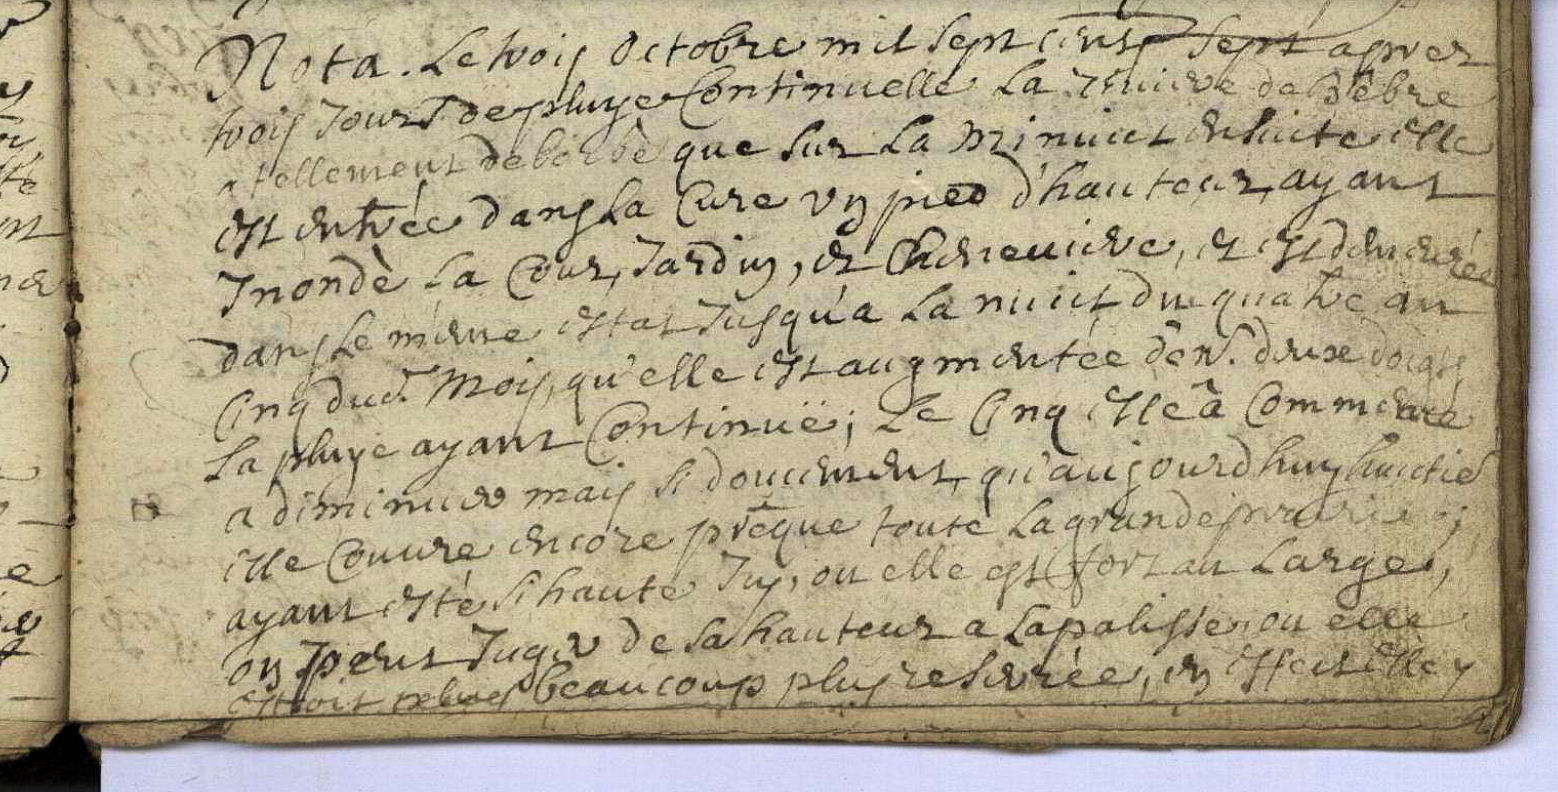 Nota. Le trois octobre mil sept cents sept apres
trois jours de pluye continuelle la riuiere de Bêbre
a tellement debordè que sur la minuict ensuite elle
est entrée dans la Cure un pied d'hauteur, ayant
Inondè la Cour, Jardin, et Cheneuiere, et est demeurée
dans le même estat jusqu'a la nuict du quatre au
Cinq dud. mois, qu'elle est augmentée d'env. deux doigts
la pluye ayant Continuë; le Cinq elle â Commencé
a diminuer mais si doucement, qu'aujourdhuy huictie
elle Couure encore prêque toute la grande prairie;
ayant esté si haute Icy, ou elle est fort au large,
on peut Juger de sa hauteur a Lapalisse, ou elle
estoit beaucoup plus reserrée, en effect elle y